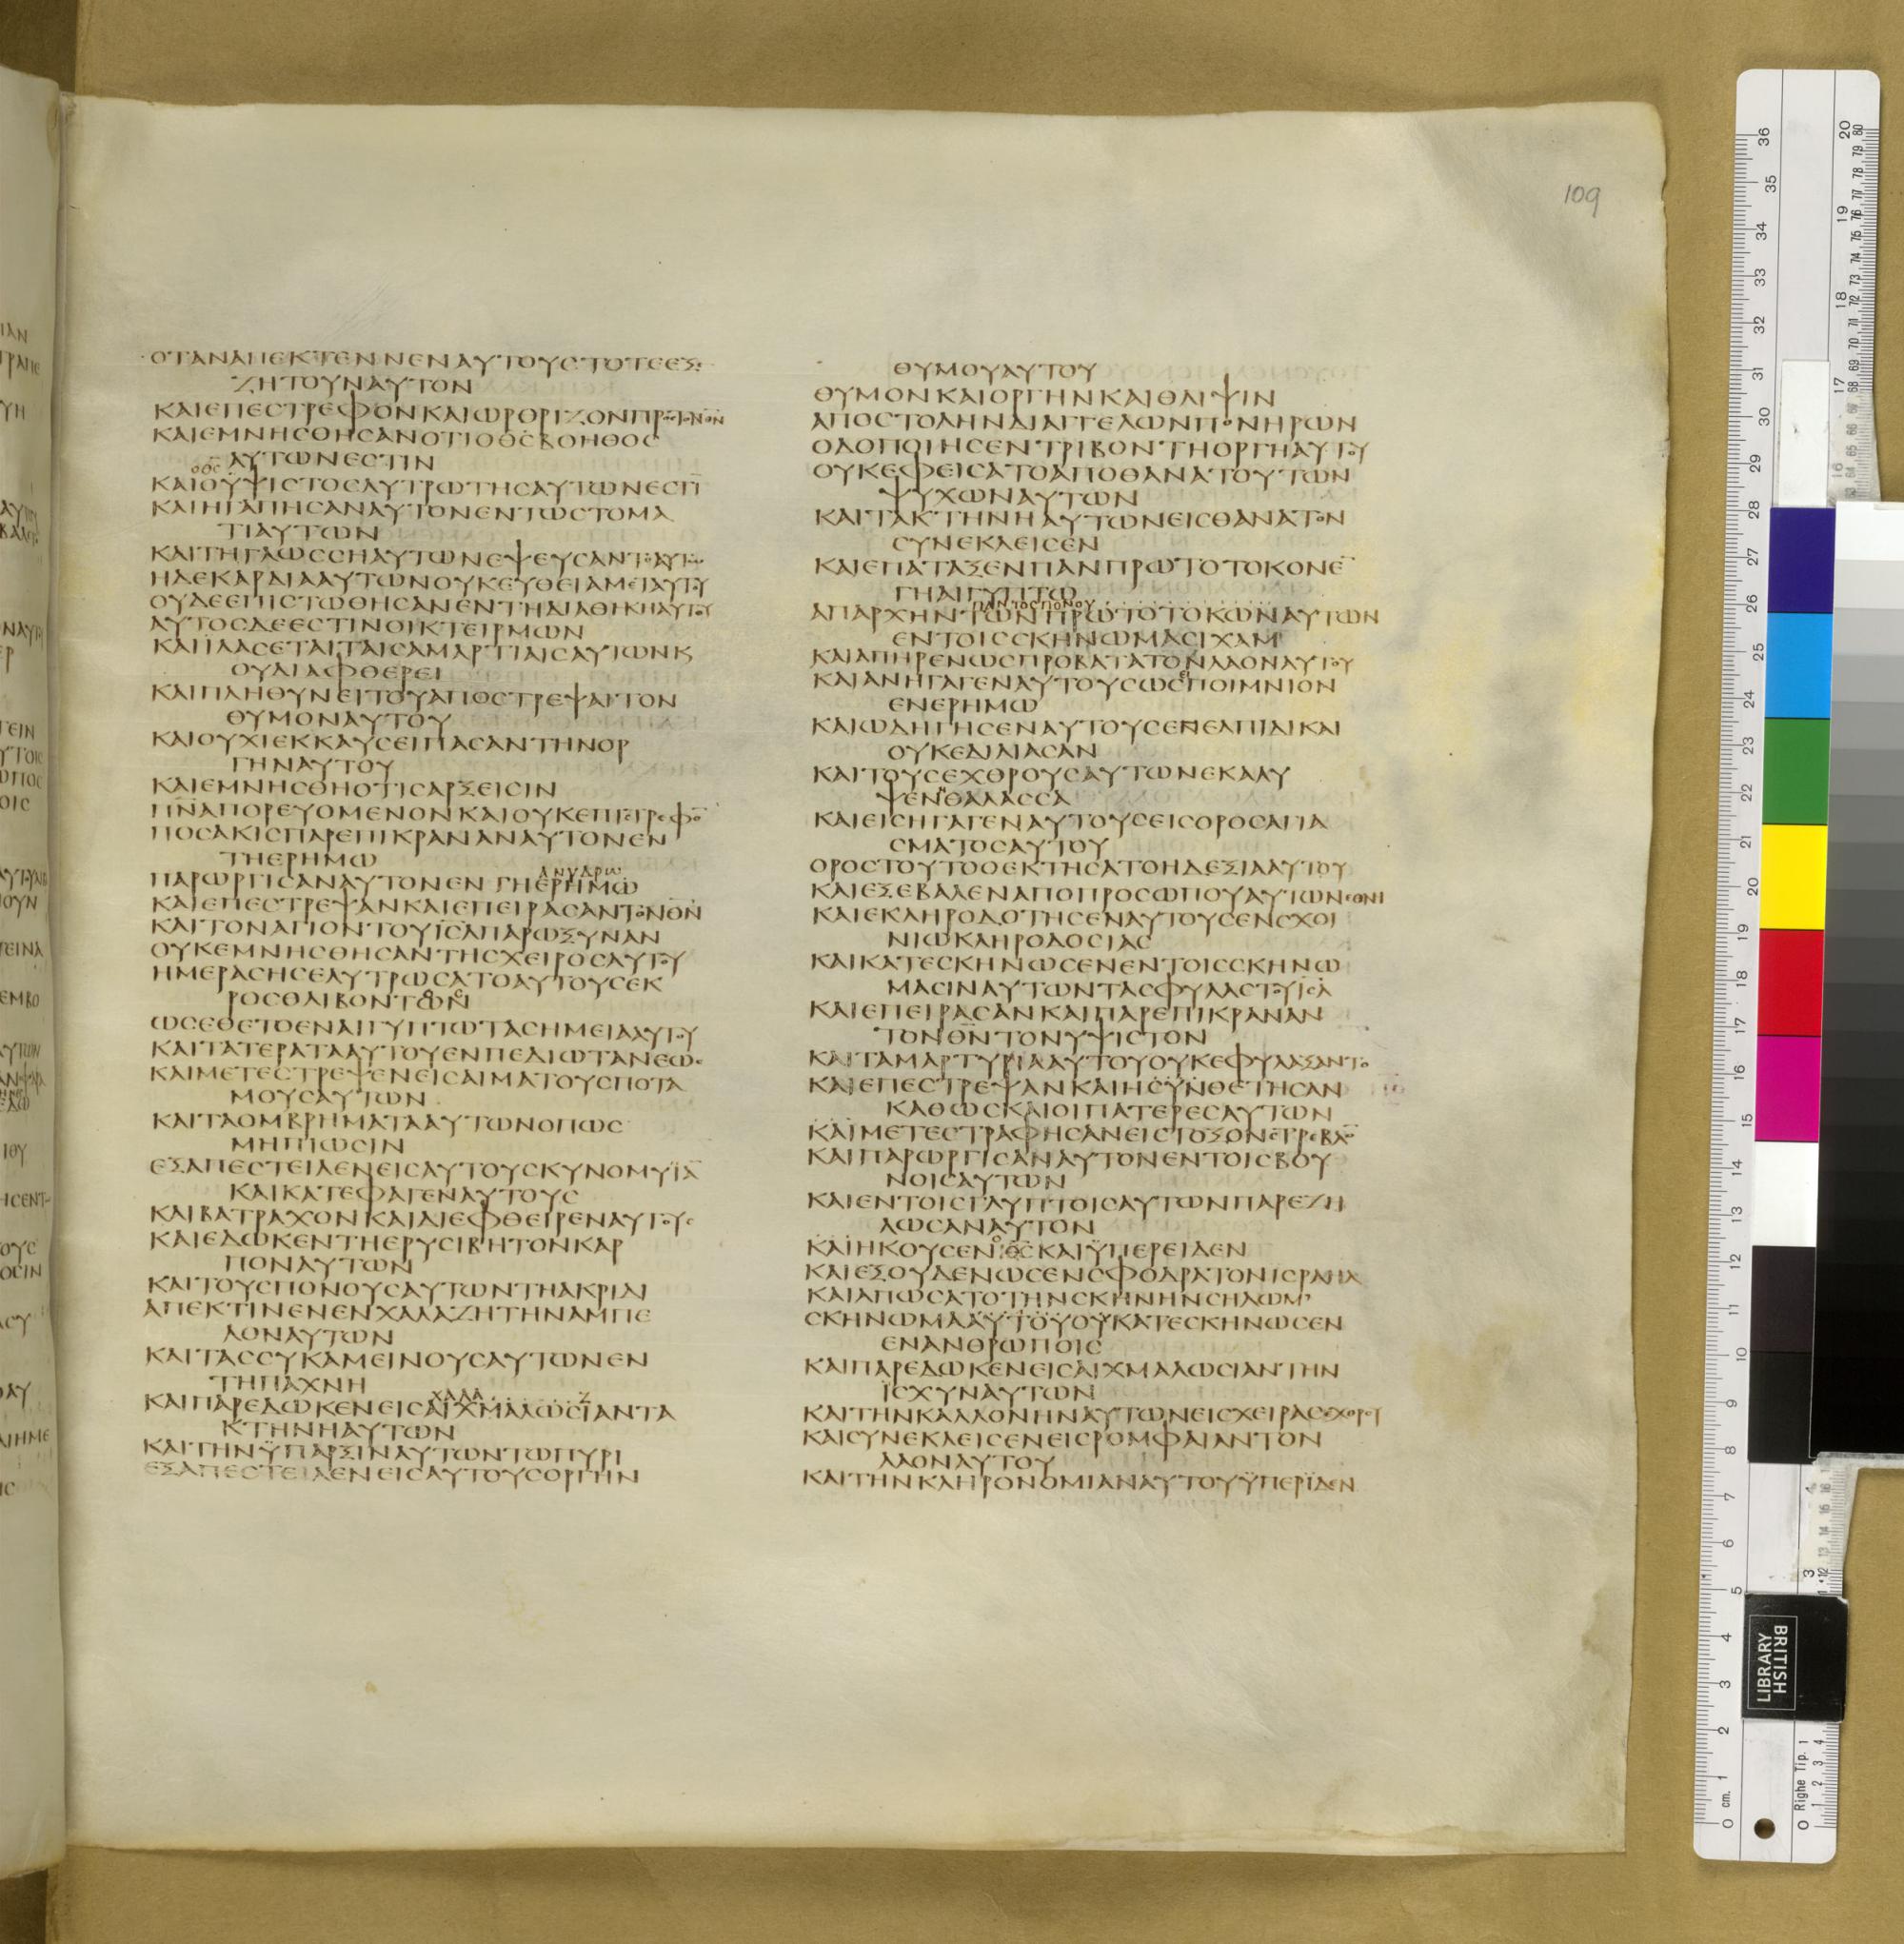 109
ΟΤΑΝΑΠΕΚΤΕΝΝΕΝΑΥΤΟΥΣΤΟΤΕΕΞΕ
ΖΗΤΟΥΝΑΥΤΟΝ
ΚΑΙΕΠΕΣΤΡΕΦΟΝΚΑΙΩΡΟΡΙΖΟΝΠΡΟΣΤΟΝΘΝ
ΚΑΙΕΜΝΗΣΘΗΣΑΝΟΤΙΟΘΣΒΟΗΘΟΣ
ΑΥΤΩΝΕΣΤΙΝ
ΟΘΣ
ΚΑΙΟΥΨΙΣΤΟΣΛΥΤΡΩΤΗΣΑΥΤΩΝΕΣΤΙ
ΚΑΙΗΓΑΠΗΣΑΝΑΥΤΟΝΕΝΤΩΣΤΟΜΑ
ΤΙΑΥΤΩΝ
ΚΑΙΤΗΓΛΩΣΣΗΑΥΤΩΝΕΨΕΥΣΑΝΤΟΑΥΤΩ
ΗΔΕΚΑΡΔΙΑΑΥΤΩΝΟΥΚΕΥΘΕΙΑΜΕΤΑΥΤΟΥ
ΟΥΔΕΕΠΙΣΤΩΘΗΣΑΝΕΝΤΗΔΙΑΘΗΚΗΑΥΤΟΥ
ΑΥΤΟΣΔΕΕΣΤΙΝΟΙΚΤΕΙΡΜΩΝ
ΚΑΙΙΛΑΣΕΤΑΙΤΑΙΣΑΜΑΡΤΙΑΙΣΑΥΤΩΝΚ
ΟΥΔΙΑΦΘΕΡΕΙ
ΚΑΙΠΛΗΘΥΝΕΙΤΟΥΑΠΟΣΤΡΕΨΑΙΤΟΝ
ΘΥΜΟΝΑΥΤΟΥ
ΚΑΙΟΥΧΙΕΚΚΑΥΣΕΙΠΑΣΑΝΤΗΝΟΡ
ΓΗΝΑΥΤΟΥ
ΚΑΙΕΜΝΗΣΘΗΟΤΙΣΑΡΞΕΙΣΙΝ
ΠΝΑΠΟΡΕΥΟΜΕΝΟΝΚΑΙΟΥΚΕΠΙΣΤΡΕΦΟ
ΠΟΣΑΚΙΣΠΑΡΕΠΙΚΡΑΝΑΝΑΥΤΟΝΕΝ
ΤΗΕΡΗΜΩ
ΑΝΥΔΡΩ
ΠΑΡΩΡΓΙΣΑΝΑΥΤΟΝΕΝΓΗΕΡΗΜΩ
ΚΑΙΕΠΕΣΤΡΕΨΑΝΚΑΙΕΠΕΙΡΑΣΑΝΤΟΝΘΝ
ΚΑΙΤΟΝΑΓΙΟΝΤΟΥΙΣΛΠΑΡΩΞΥΝΑΝ
ΟΥΚΕΜΝΗΣΘΗΣΑΝΤΗΣΧΕΙΡΟΣΑΥΤΟΥ
ΗΜΕΡΑΣΗΣΕΛΥΤΡΩΣΑΤΟΑΥΤΟΥΣΕΚ
ΡΟΣΘΛΙΒΟΝΤΩΝ
ΩΣΕΘΕΤΟΕΝΑΙΓΥΠΤΩΤΑΣΗΜΕΙΑΑΥΤΟΥ
ΚΑΙΤΑΤΕΡΑΤΑΑΥΤΟΥΕΝΠΕΔΙΩΤΑΝΕΩΣ
ΚΑΙΜΕΤΕΣΤΡΕΨΕΝΕΙΣΑΙΜΑΤΟΥΣΠΟΤΑ
ΜΟΥΣΑΥΤΩΝ
ΚΑΙΤΑΟΜΒΡΗΜΑΤΑΑΥΤΩΝΟΠΩΣ
ΜΗΠΙΩΣΙΝ
ΕΞΑΠΕΣΤΕΙΛΕΝΕΙΣΑΥΤΟΥΣΚΥΝΟΜΥΙΑ
ΚΑΙΚΑΤΕΦΑΓΕΝΑΥΤΟΥΣ
ΚΑΙΒΑΤΡΑΧΟΝΚΑΙΔΙΕΦΘΕΙΡΕΝΑΥΤΟΥΣ
ΚΑΙΕΔΩΚΕΝΤΗΕΡΥΣΙΒΗΤΟΝΚΑΡ
ΠΟΝΑΥΤΩΝ
ΚΑΙΤΟΥΣΠΟΝΟΥΣΑΥΤΩΝΤΗΑΚΡΙΔΙ
ΑΠΕΚΤΙΝΕΝΕΝΧΑΛΑΖΗΤΗΝΑΜΠΕ
ΛΟΝΑΥΤΩΝ
ΚΑΙΤΑΣΣΥΚΑΜΕΙΝΟΥΣΑΥΤΩΝΕΝ
ΤΗΠΑΧΝΗ
ΧΑΛΑ Ζ
ΚΑΙΠΑΡΕΔΩΚΕΝΕΙΣΑΙΧΜΑΛΩΣΙΑΝΤΑ
ΚΤΗΝΗΑΥΤΩΝ
ΚΑΙΤΗΝΥΠΑΡΞΙΝΑΥΤΩΝΤΩΠΥΡΙ
ΕΞΑΠΕΣΤΕΙΛΕΝΕΙΣΑΥΤΟΥΣΟΡΓΗΝ
ΘΥΜΟΥΑΥΤΟΥ
ΘΥΜΟΝΚΑΙΟΡΓΗΝΚΑΙΘΛΙΨΙΝ
ΑΠΟΣΤΟΛΗΝΔΙΑΓΓΕΛΩΝΠΟΝΗΡΩΝ
ΟΔΟΠΟΙΗΣΕΝΤΡΙΒΟΝΤΗΟΡΓΗΑΥΤΟΥ
ΟΥΚΕΦΕΙΣΑΤΟΑΠΟΘΑΝΑΤΟΥΤΩΝ
ΨΥΧΩΝΑΥΤΩΝ
ΚΑΙΤΑΚΤΗΝΗΑΥΤΩΝΕΙΣΘΑΝΑΤΟΝ
ΣΥΝΕΚΛΕΙΣΕΝ
ΚΑΙΕΠΑΤΑΞΕΝΠΑΝΠΡΩΤΟΤΟΚΟΝΕ
ΓΗΑΙΓΥΠΤΩ
ΠΑΝΤΟΣΠΟΝΟΥ
ΑΠΑΡΧΗΝΤΩΝΠΡΩΤΟΤΟΚΩΝΑΥΤΩΝ
ΕΝΤΟΙΣΣΚΗΝΩΜΑΣΙΧΑΜ
ΚΑΙΑΠΗΡΕΝΩΣΠΡΟΒΑΤΑΤΟΝΛΑΟΝΑΥΤΟΥ
ΚΑΙΑΝΗΓΑΓΕΝΑΥΤΟΥΣΩΣΠΟΙΜΝΙΟΝ
ΕΝΕΡΗΜΩ
ΚΑΙΩΔΗΓΗΣΕΝΑΥΤΟΥΣΕΝΕΛΠΙΔΙΚΑΙ
ΟΥΚΕΔΙΛΙΑΣΑΝ
ΚΑΙΤΟΥΣΕΧΘΡΟΥΣΑΥΤΩΝΕΚΑΛΥ
ΨΕΝΗΘΑΛΑΣΣΑ
ΚΑΙΕΙΣΗΓΑΓΕΝΑΥΤΟΥΣΕΙΣΟΡΟΣΑΓΙΑ
ΣΜΑΤΟΣΑΥΤΟΥ
ΟΡΟΣΤΟΥΤΟΟΕΚΤΗΣΑΤΟΗΔΕΞΙΑΑΥΤΟΥ
ΚΑΙΕΞΕΒΑΛΕΝΑΠΟΠΡΟΣΩΠΟΥΑΥΤΩΝΕΘΝΗ
ΚΑΙΕΚΛΗΡΟΔΟΤΗΣΕΝΑΥΤΟΥΣΕΝΣΧΟΙ
ΝΙΩΚΛΗΡΟΔΟΣΙΑΣ
ΚΑΙΚΑΤΕΣΚΗΝΩΣΕΝΕΝΤΟΙΣΣΚΗΝΩ
ΜΑΣΙΝΑΥΤΩΝΤΑΣΦΥΛΑΣΤΟΥΙΣΛ
ΚΑΙΕΠΕΙΡΑΣΑΝΚΑΙΠΑΡΕΠΙΚΡΑΝΑΝ
ΤΟΝΘΝΤΟΝΥΨΙΣΤΟΝ
ΚΑΙΤΑΜΑΡΤΥΡΙΑΑΥΤΟΥΟΥΚΕΦΥΛΑΞΑΝΤΟ
ΚΑΙΕΠΕΣΤΡΕΨΑΝΚΑΙΗΣΥΝΘΕΤΗΣΑΝ
ΚΑΘΩΣΚΑΙΟΙΠΑΤΕΡΕΣΑΥΤΩΝ
ΚΑΙΜΕΤΕΣΤΡΑΦΗΣΑΝΕΙΣΤΟΞΟΝΣΤΡΕΒΛΟ
ΚΑΙΠΑΡΩΡΓΙΣΑΝΑΥΤΟΝΕΝΤΟΙΣΒΟΥ
ΝΟΙΣΑΥΤΩΝ
ΚΑΙΕΝΤΟΙΣΓΛΥΠΤΟΙΣΑΥΤΩΝΠΑΡΕΖΗ
ΛΩΣΑΝΑΥΤΟΝ
ΚΑΙΗΚΟΥΣΕΝΟΘΣΚΑΙΥΠΕΡΕΙΔΕΝ
ΚΑΙΕΞΟΥΔΕΝΩΣΕΝΣΦΟΔΡΑΤΟΝΙΣΡΑΗΛ
ΚΑΙΑΠΩΣΑΤΟΤΗΝΣΚΗΝΗΝΣΗΛΩΜ
ΣΚΗΝΩΜΑΑΥΤΟΥΟΥΚΑΤΕΣΚΗΝΩΣΕΝ
ΕΝΑΝΘΡΩΠΟΙΣ
ΚΑΙΠΑΡΕΔΩΚΕΝΕΙΣΑΙΧΜΑΛΩΣΙΑΝΤΗΝ
ΙΣΧΥΝΑΥΤΩΝ
ΚΑΙΤΗΝΚΑΛΛΟΝΗΝΑΥΤΩΝΕΙΣΧΕΙΡΑΣΕΧΘΡΟΥ
ΚΑΙΣΥΝΕΚΛΕΙΣΕΝΕΙΣΡΟΜΦΑΙΑΝΤΟΝ
ΛΑΟΝΑΥΤΟΥ
ΚΑΙΤΗΝΚΛΗΡΟΝΟΜΙΑΝΑΥΤΟΥΥΠΕΡΙΔΕΝ
BRITISH
LIBRARY
0 cm. 1 2 3 4 5 6 7 8 9 10 11 12 13 14 15 16 17 18 19 20 21 22 23 24 25 26 27 28 29 30 31 32 33 34 35 36
0 Righe Tip. 1